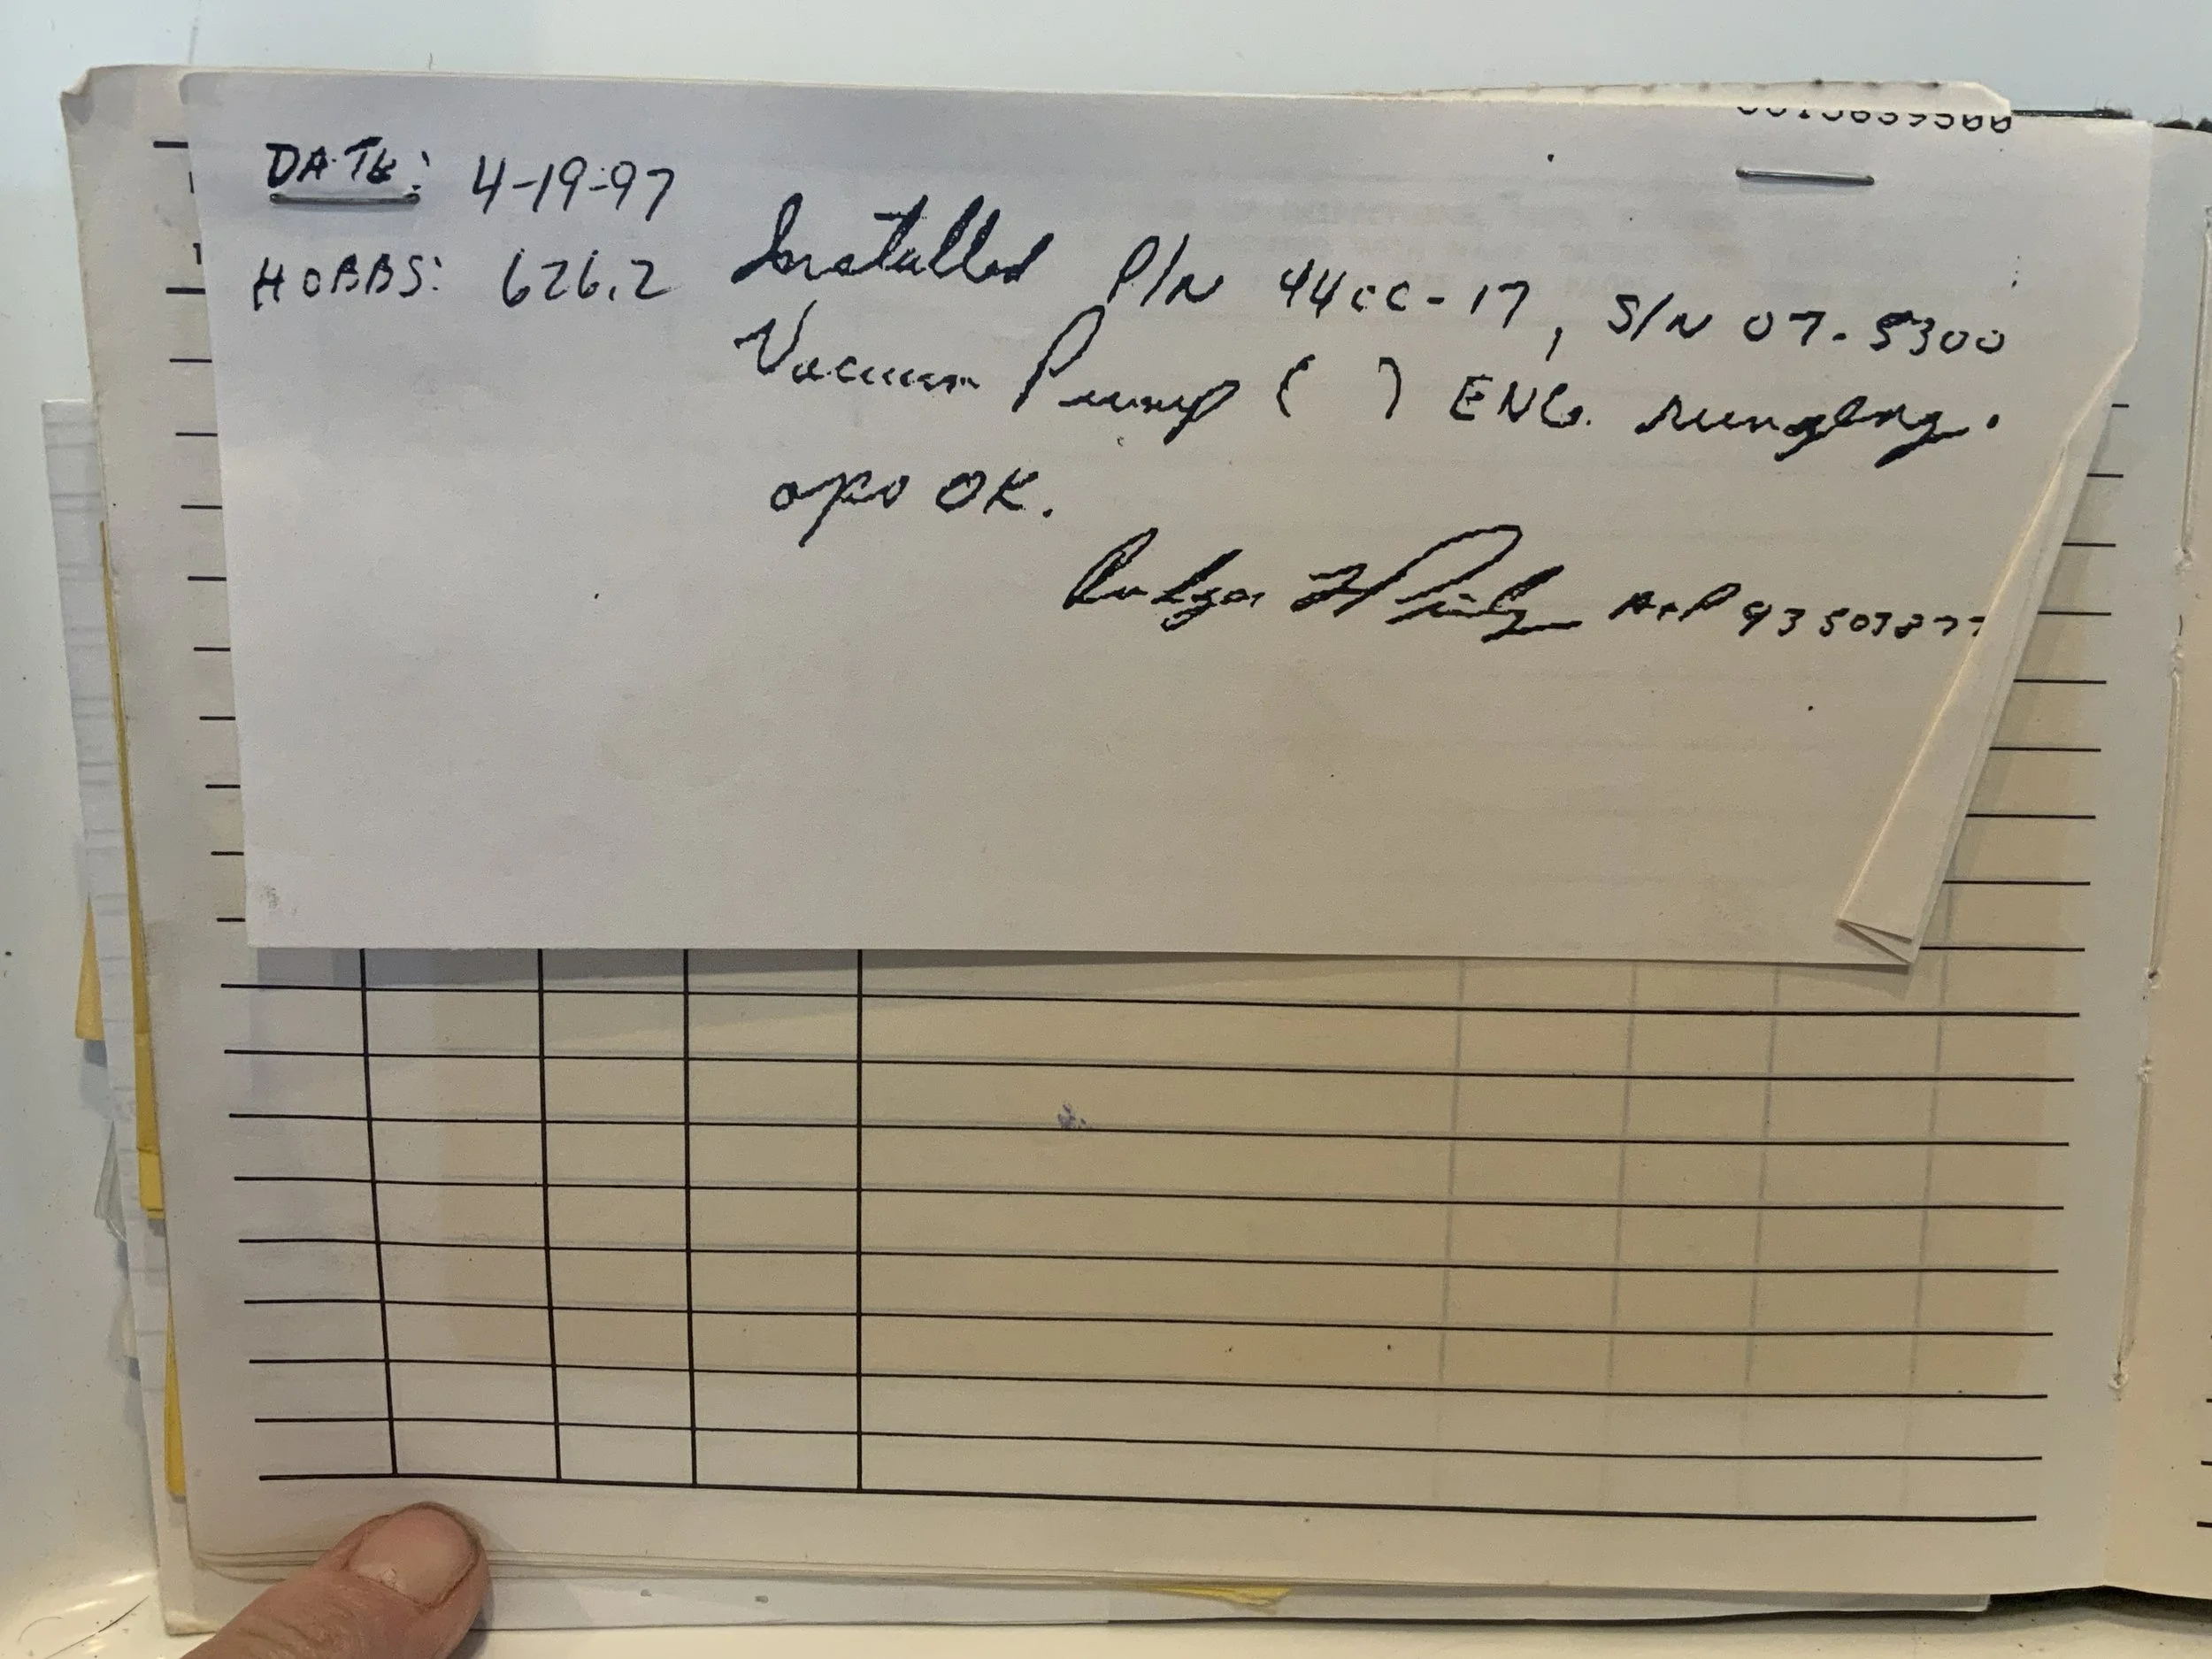 DATE: 4-19-97
HOBBS: 626.2 Installed P/N 44cc-17, S/N 07-5300
Vacuum Pump ( ) ENG.
ops OK.
A+P